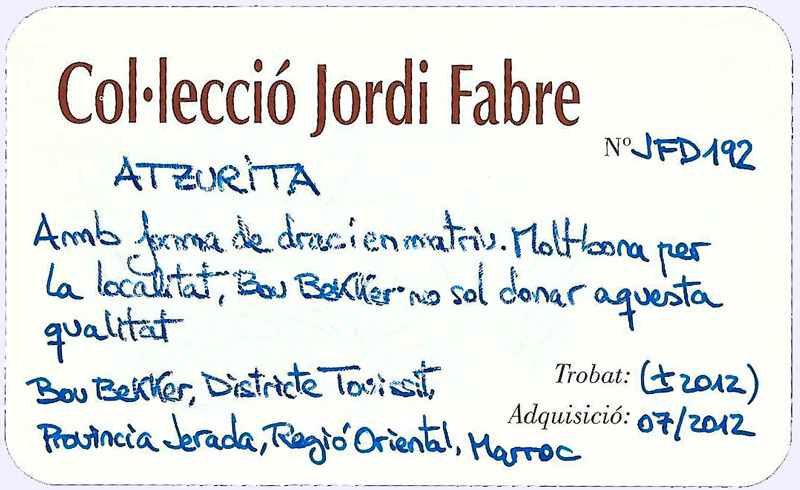 Col·lecció Jordi Fabre
Nº JFD192
ATZURITA
Amb forma de drac i en matriu. Molt bona per
la localitat, Bou Bekker no sol donar aquesta
qualitat
Bou Bekker, Districte Touissit,
Trobat: (± 2012)
Adquisició: 07/2012
Província Jerada, Regió Oriental, Marroc